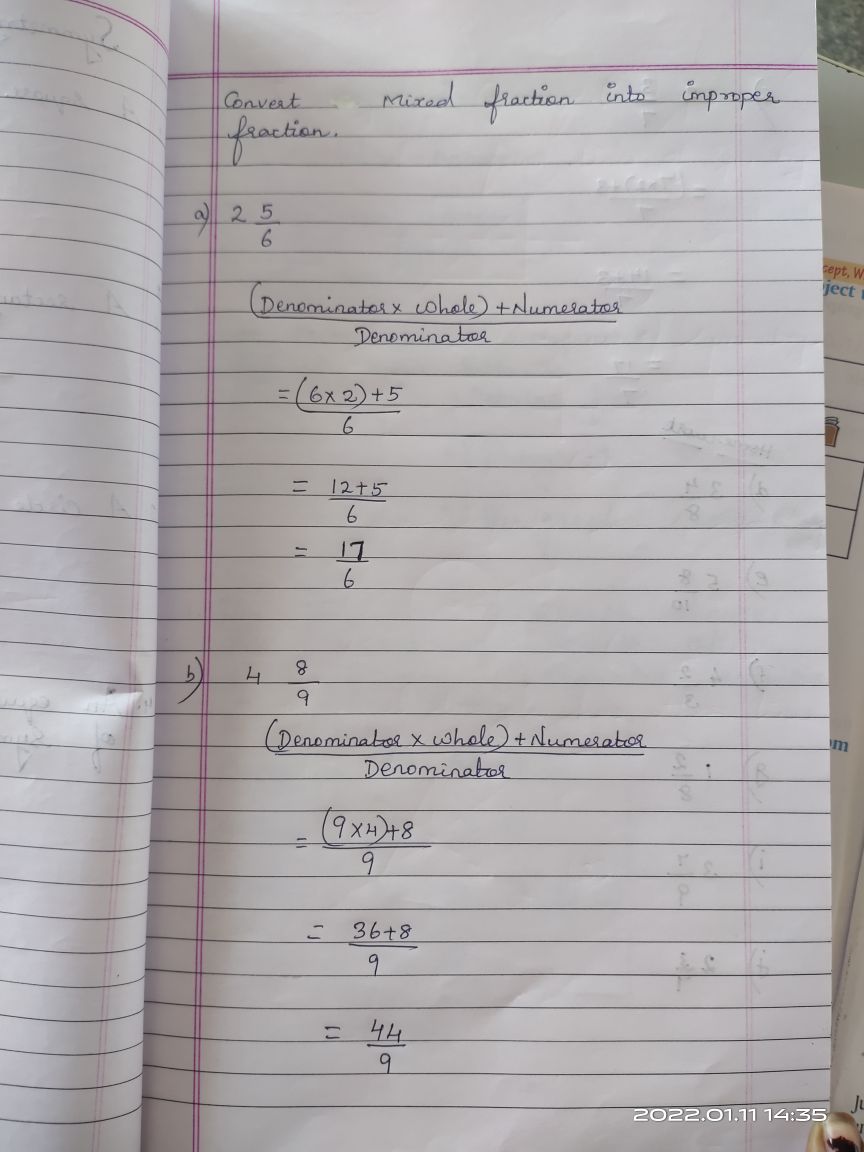 Convert Mixed fraction into improper
fraction.
a) 2 5/6
(Denominator x whole) + Numerator
Denominator
= (6 x 2) + 5
6
= 12+5
6
= 17
6
b) 4 8/9
(Denominator x whole) + Numerator
Denominator
= (9 x 4)+8
9
= 36+8
9
= 44
9
cept, W
ject
om
2022.01.11 14:35